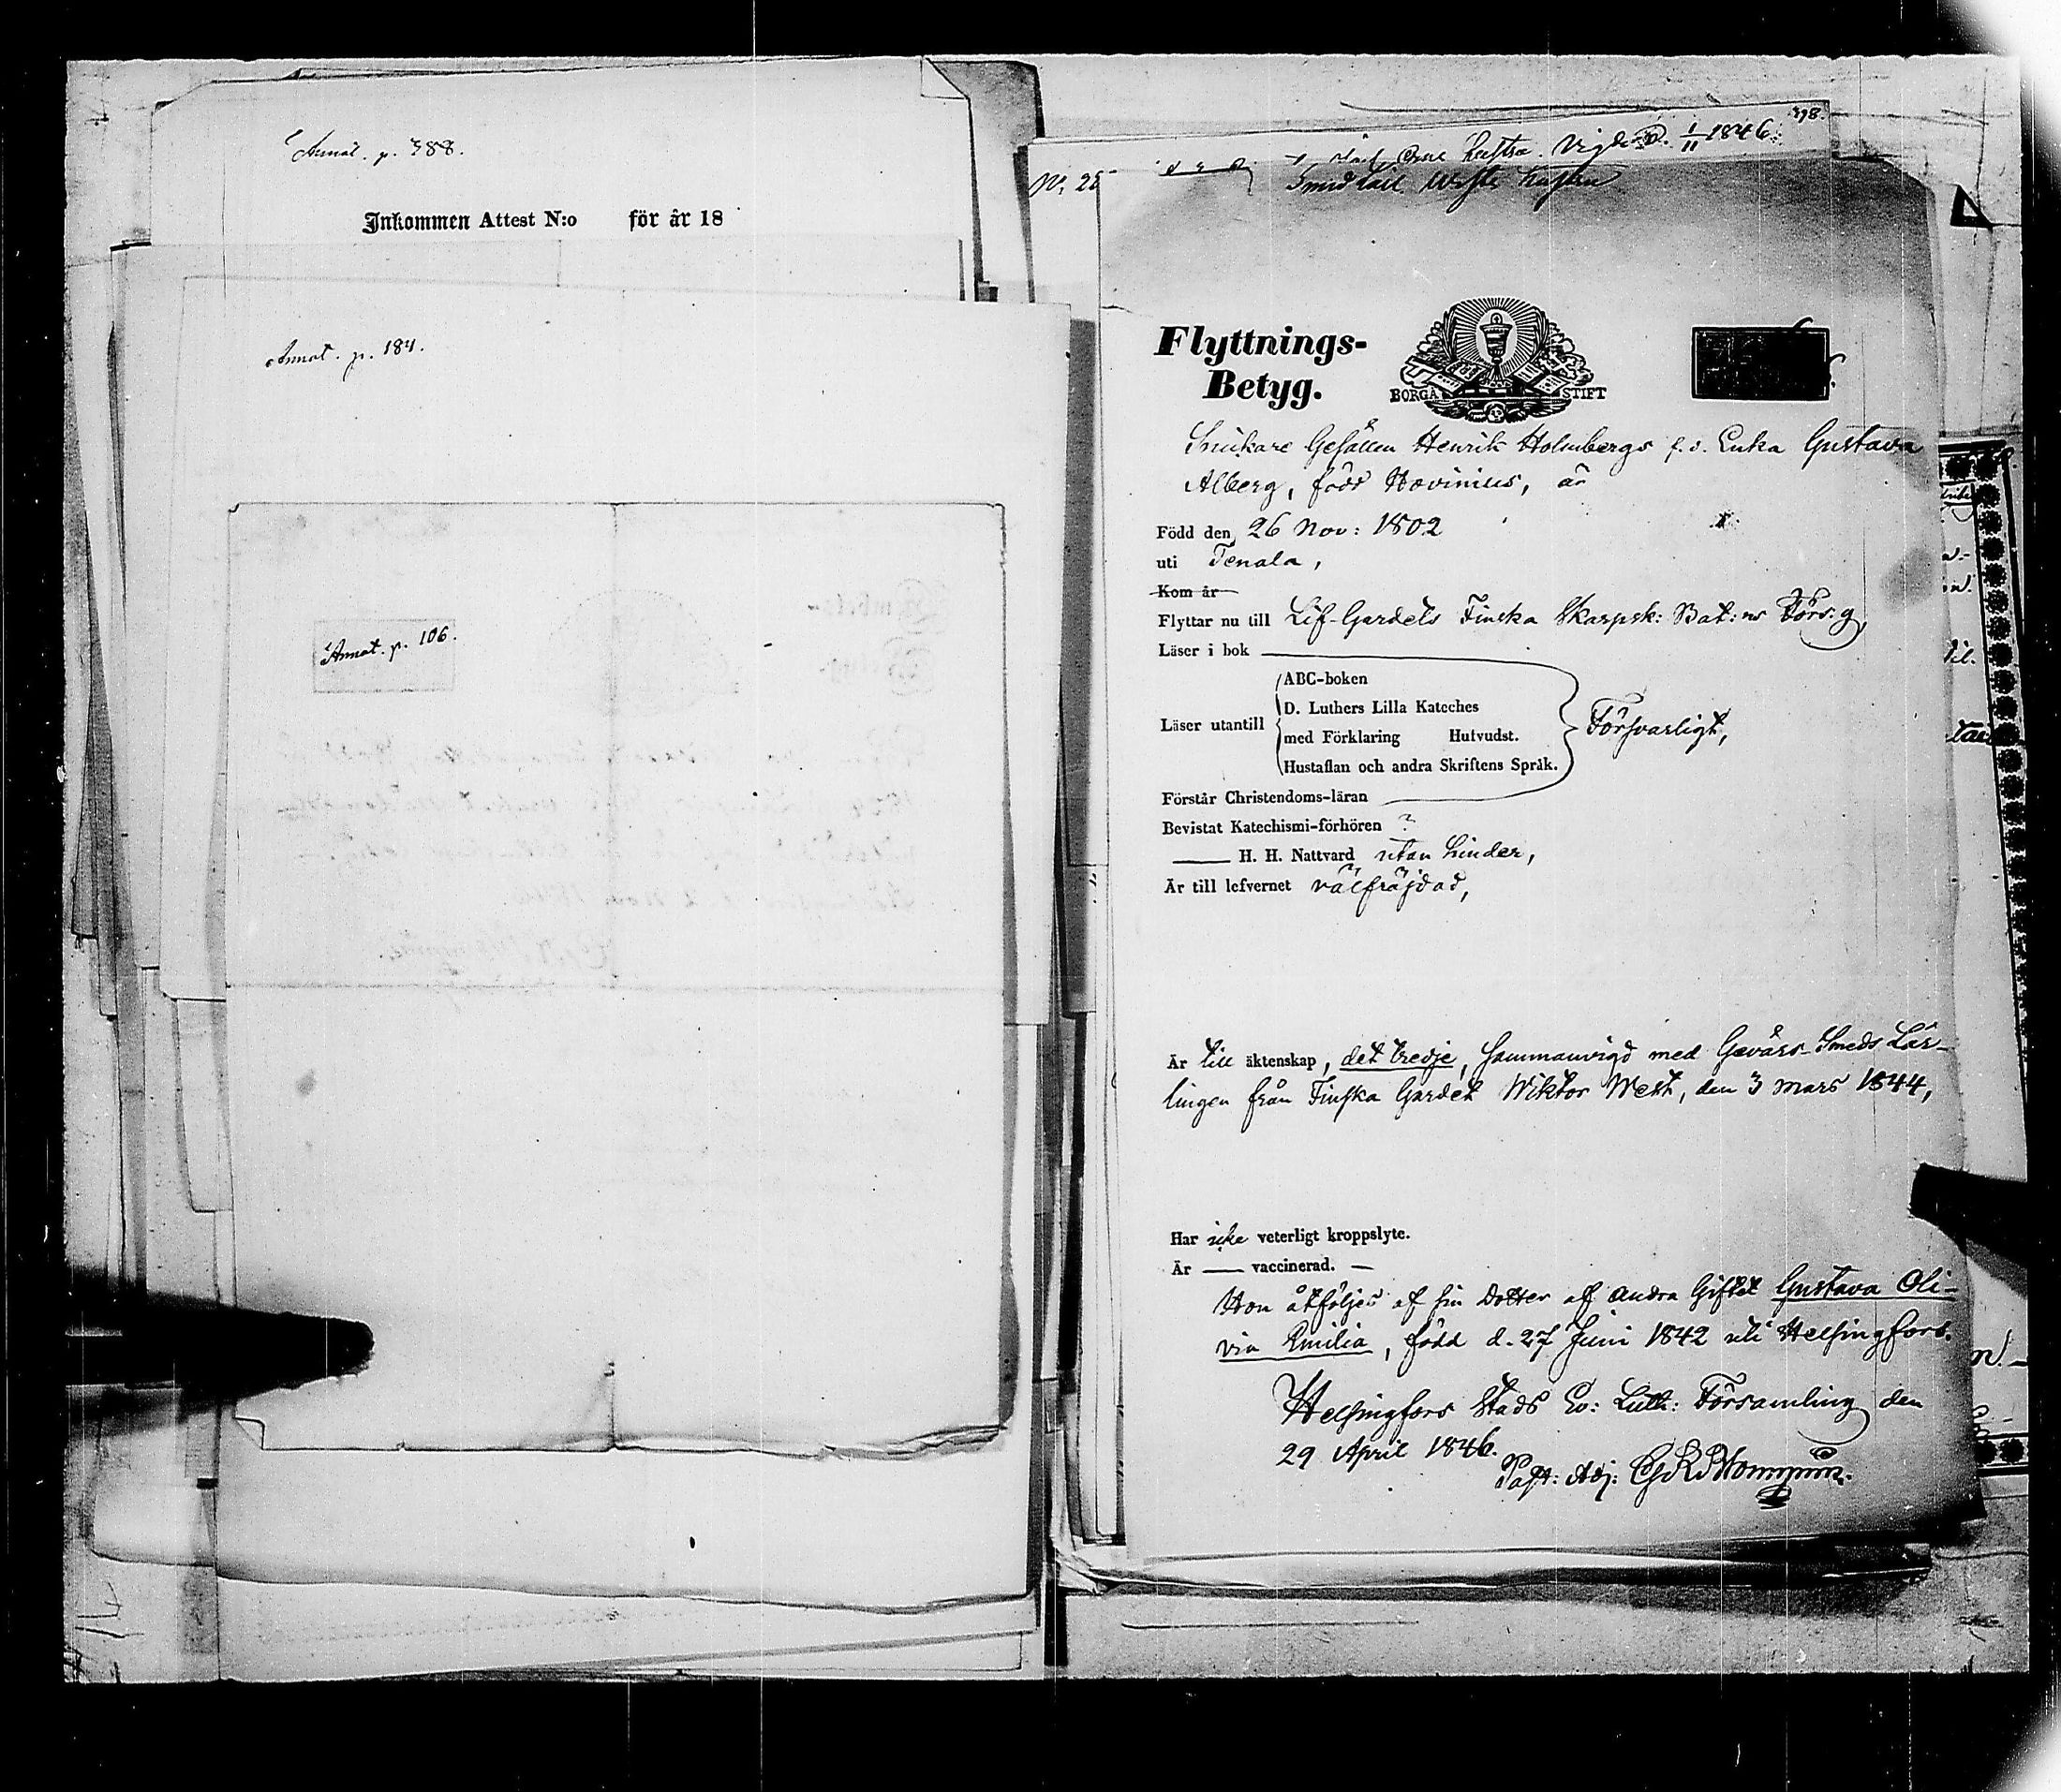 Annot. p. 388.
Inkommen Attest N:o för år 18
Annot. p. 184.
Annot. p. 106.
398.
Vigde d. 1/11 1846.
Flyttnings-
Betyg.
BORGÅ STIFT
Snickare Gesällen Henrik Holmbergs f. d. Enka Gustava
Alberg, född Hovinius, är
Född den 26 Nov: 1802
uti Tenala,
Kom år
Flyttar nu till Lif-Gardets Finska Skarpsk: Bat:ns Förs:g,
Läser i bok
ABC-boken
D. Luthers Lilla Kateches
Läser utantill
med Förklaring Hufvudst.
Försvarligt,
Hustaflan och andra Skriftens Språk.
Förstår Christendoms-läran
Bevistat Katechismi-förhören ?
H. H. Nattvard utan hinder,
Är till lefvernet välfräjdad,
Är till äktenskap, det tredje, sammanvigd med Gevärs-Smeds Lär-
lingen från Finska Gardet Wiktor West, den 3 Mars 1844,
Har icke veterligt kroppslyte.
Är — vaccinerad. —
Hon åtföljes af sin Dotter af andra Giftet Gustava Oli-
via Emilia, född d. 27 Juni 1842 uti Helsingfors.
Helsingfors Stads Ev: Luth: Församling den
29 April 1846.
Past: Adj: